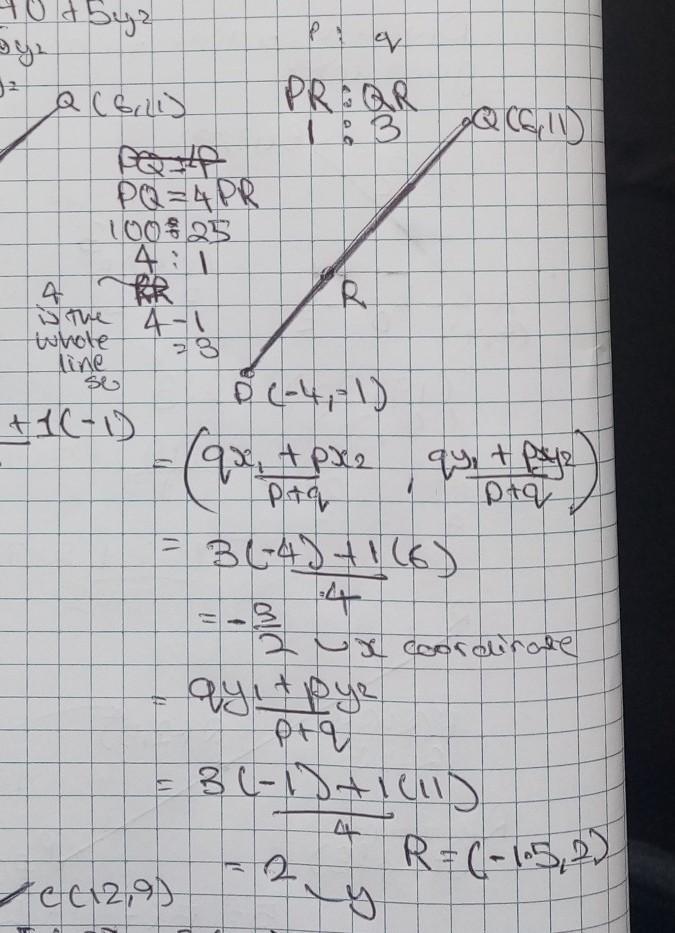 40 + 5y2
5y2
p : q
Q (6,11)
PR : QR
1 : 3
Q(6,11)
PQ = 4P
PQ = 4PR
100 : 25
4 : 1
RR
4 - 1
= 3
4
is the
whole
line
so
R
P (-4,-1)
+ 1(-1)
= (qx1 + px2 / p+q , qy1 + py2 / p+q)
= 3(-4) + 1(6)
4
= -3/2 x coordinate
= qy1 + py2
p+q
= 3(-1) + 1(11)
4
R = (-1.5,2)
= 2 y
C(12,9)